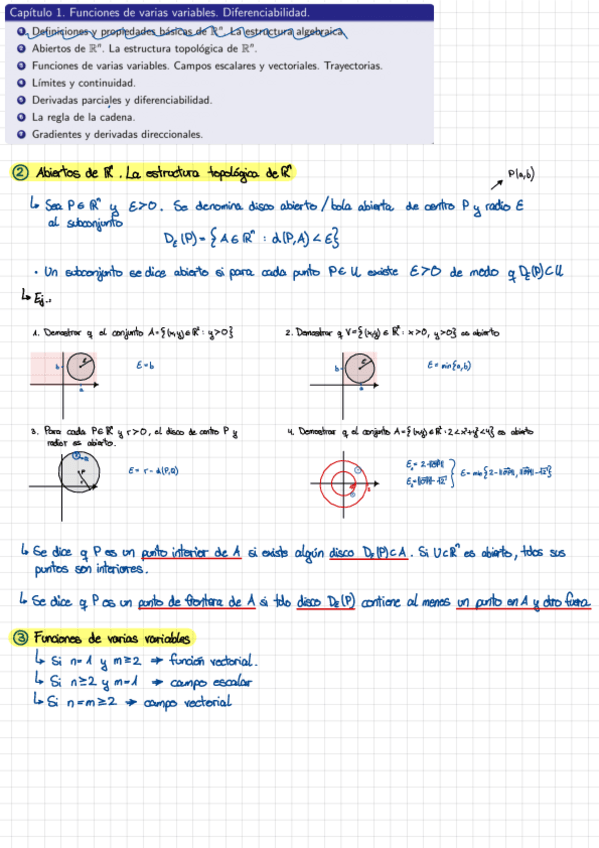 Capítulo 1. Funciones de varias variables. Diferenciabilidad.
1 Definiciones y propiedades básicas de ℝⁿ. La estructura algebraica.
2 Abiertos de ℝⁿ. La estructura topológica de ℝⁿ.
3 Funciones de varias variables. Campos escalares y vectoriales. Trayectorias.
4 Límites y continuidad.
5 Derivadas parciales y diferenciabilidad.
6 La regla de la cadena.
7 Gradientes y derivadas direccionales.
② Abiertos de ℝⁿ. La estructura topológica de ℝⁿ
P(a,b)
↳ Sea P∈ℝⁿ y ε>0. Se denomina disco abierto / bola abierta de centro P y radio ε
al subconjunto
Dε(P)={A∈ℝⁿ : d(P,A)<ε}
· Un subconjunto se dice abierto si para cada punto P∈U existe ε>0 de modo q Dε(P)⊂U
↳ Ej.:
1. Demostrar q el conjunto A={(x,y)∈ℝ²: y>0}
b
a
ε=b
2. Demostrar q V={(x,y)∈ℝ²: x>0, y>0} es abierto
b
a
ε=min{a,b}
3. Para cada P∈ℝⁿ y r>0, el disco de centro P y
radior es abierto.
ε= r-d(P,Q)
4. Demostrar q el conjunto A={(x,y)∈ℝ²: 2<x²+y²<4} es abierto
↳ Se dice q P es un punto interior de A si existe algún disco Dε(P)⊂A. Si U⊂ℝⁿ es abierto, tdos sus
puntos son interiores.
↳ Se dice q P es un punto de frontera de A si tdo disco Dε(P) contiene al menos un punto en A y otro fuera
③ Funciones de varias variables
↳ Si n=1 y m≥2 → función vectorial.
↳ Si n≥2 y m=1 → campo escalar
↳ Si n=m≥2 → campo vectorial